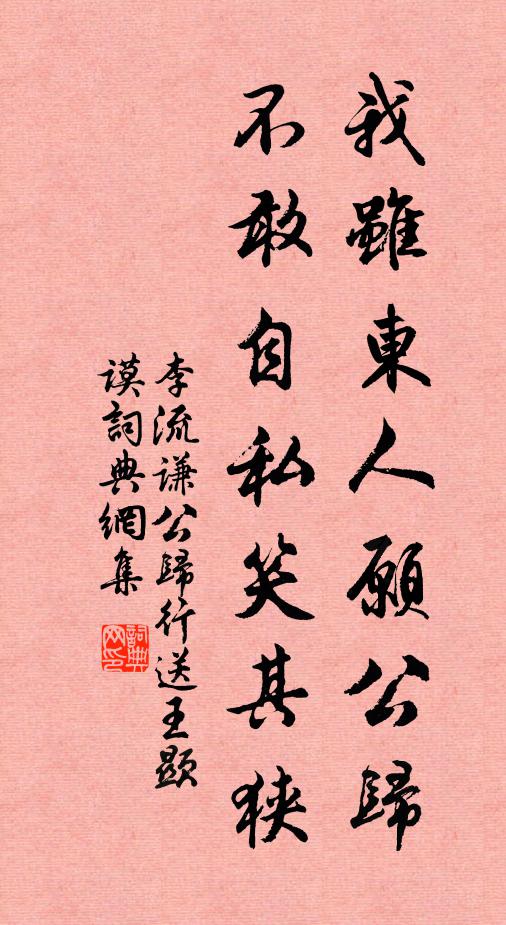 我雖東人願公歸
不敢自私笑其狹
李流謙公歸行送王顯
謨詞典網集
詞典
网印